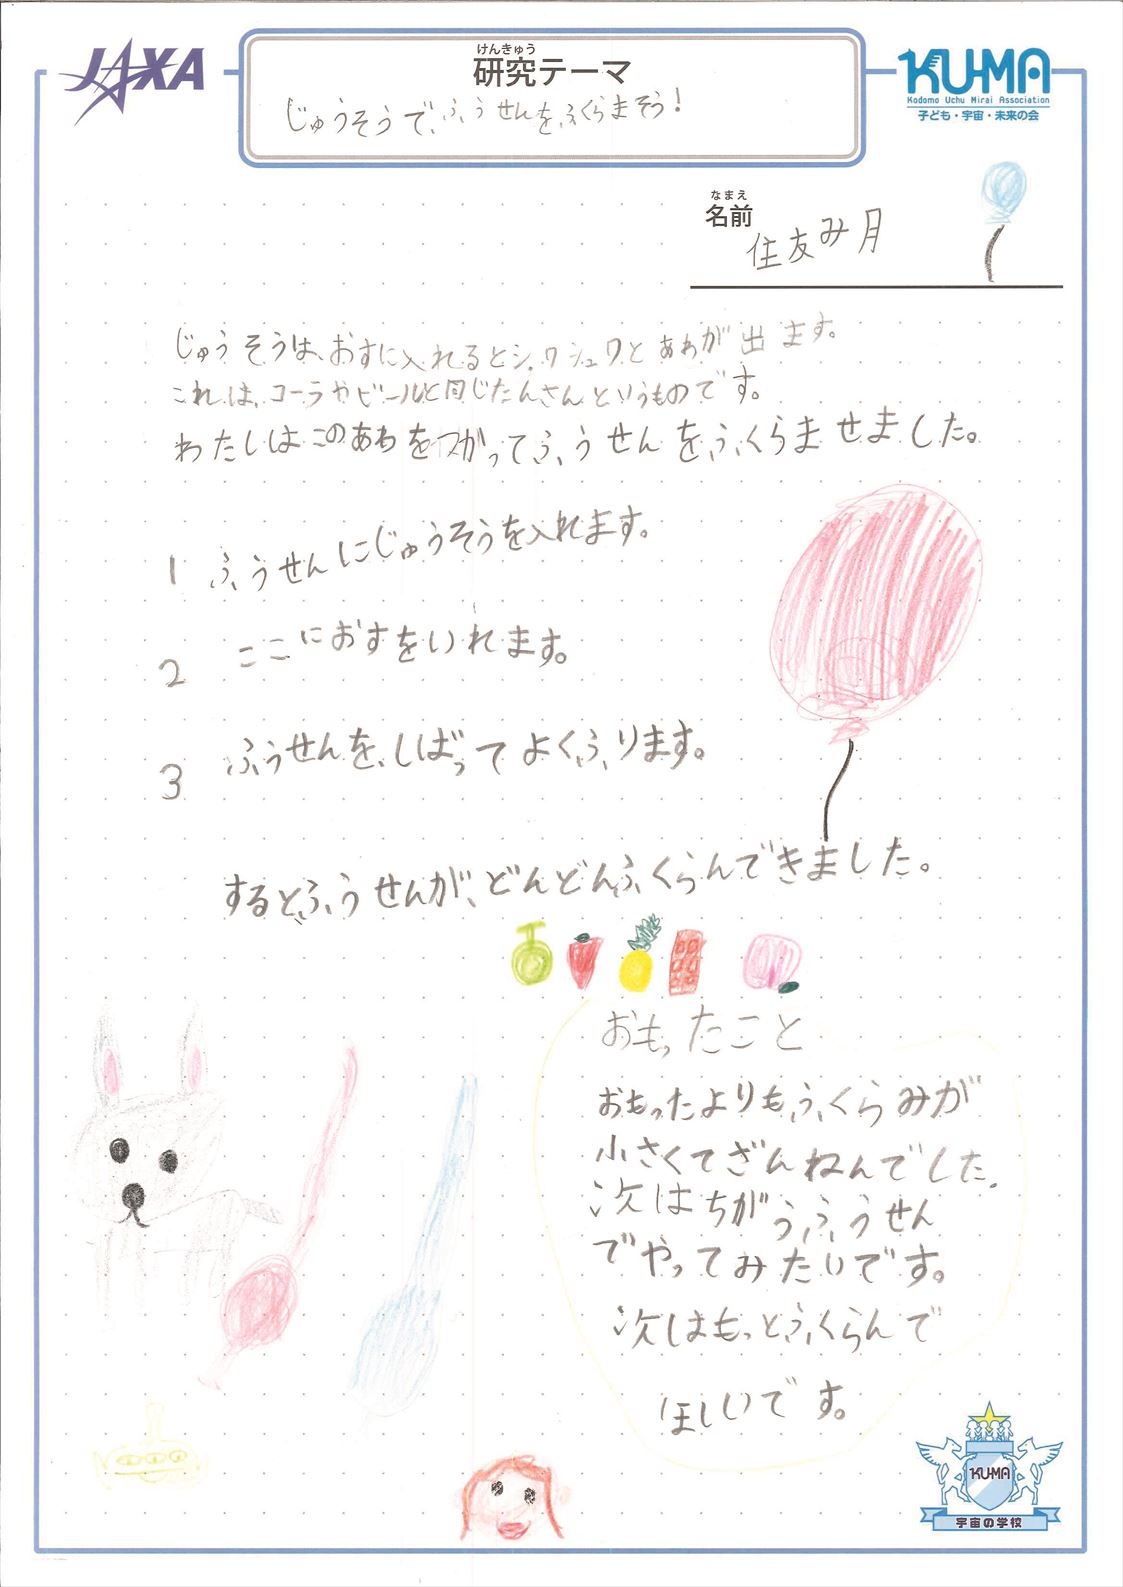 JAXA
けんきゅう
研究テーマ
じゅうそうで、ふうせんをふくらまそう!
KU-MA
Kodomo Uchu Mirai Association
子ども・宇宙・未来の会
なまえ
名前
住友み月
じゅうそうは、おすに入れるとシュワシュワとあわが出ます。
これは、コーラやビールと同じたんさんというものです。
わたしはこのあわをつかってふうせんをふくらませました。
1 ふうせんにじゅうそうを入れます。
2 ここにおすをいれます。
3 ふうせんを、しばってよくふります。
するとふうせんが、どんどんふくらんできました。
おもったこと
おもったよりもふくらみが
小さくてざんねんでした。
次はちがうふうせん
でやってみたいです。
次はもっとふくらんで
ほしいです。
KU-MA
宇宙の学校